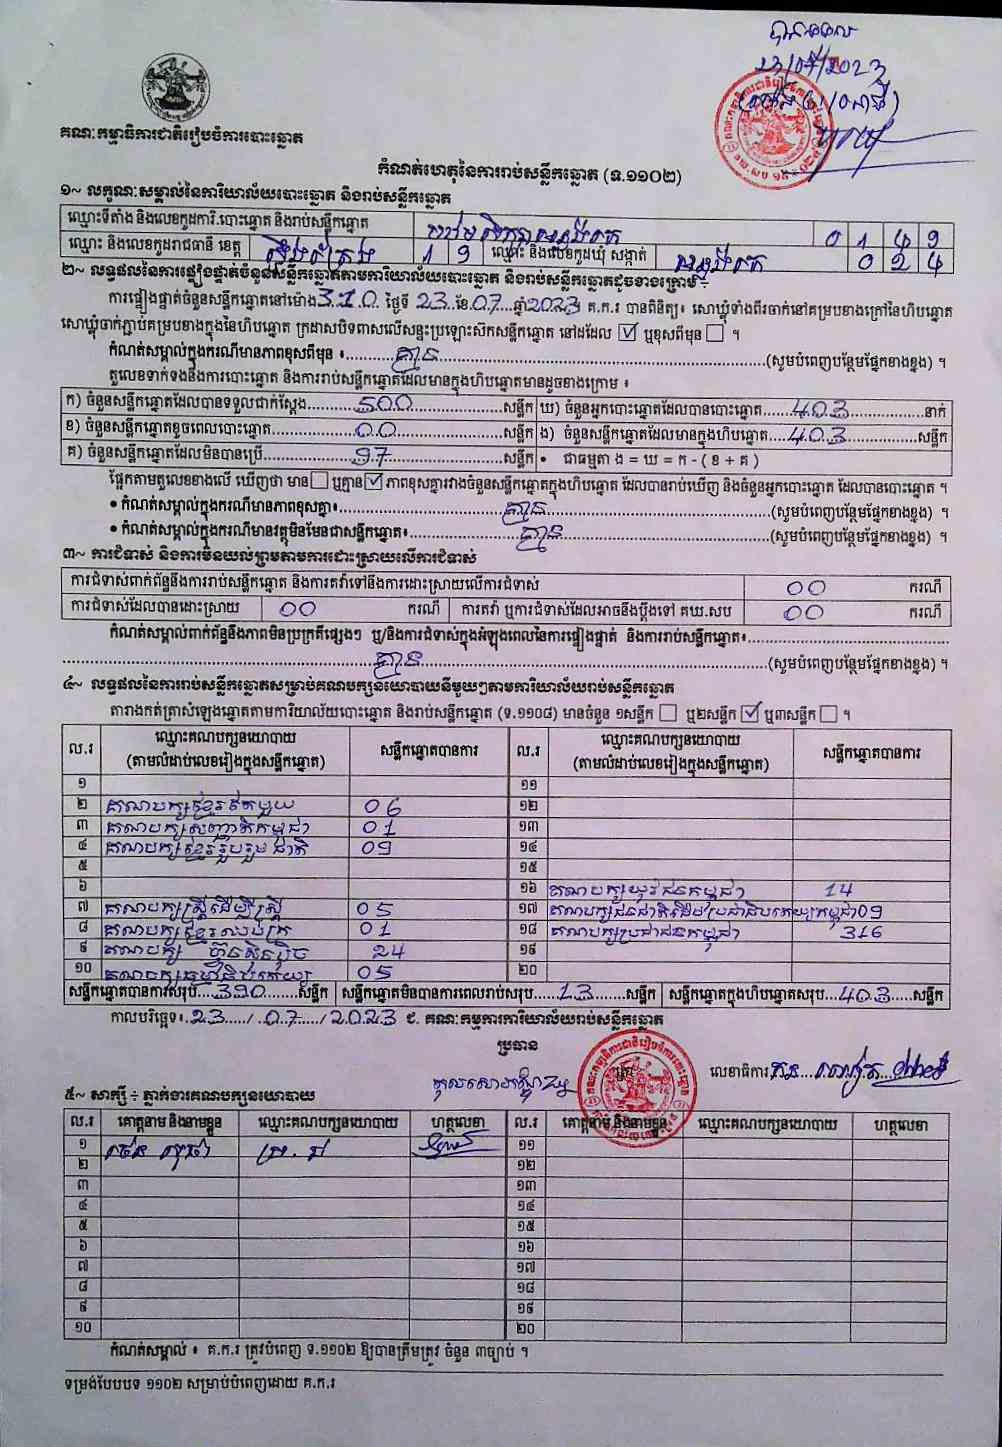 បានទទួល
23/07/2023
គណៈកម្មាធិការជាតិរៀបចំការបោះឆ្នោត
កំណត់ហេតុនៃការរាប់សន្លឹកឆ្នោត (ទ.១១០២)
១~ លក្ខណៈសម្គាល់នៃការិយាល័យបោះឆ្នោត និងរាប់សន្លឹកឆ្នោត
ឈ្មោះទីតាំង និងលេខកូដការិ.បោះឆ្នោត និងរាប់សន្លឹកឆ្នោត
ឈ្មោះ និងលេខកូដរាជធានី ខេត្ត ស្ទឹងត្រែង 1 9 ឈ្មោះ និងលេខកូដឃុំ សង្កាត់ 0 2 4
២~ លទ្ធផលនៃការផ្ទៀងផ្ទាត់ចំនួនសន្លឹកឆ្នោតតាមការិយាល័យបោះឆ្នោត និងរាប់សន្លឹកឆ្នោតដូចខាងក្រោម ÷
ការផ្ទៀងផ្ទាត់ចំនួនសន្លឹកឆ្នោតនៅម៉ោង 3:10 ថ្ងៃទី 23 ខែ 07 ឆ្នាំ 2023 គ.ក.រ បានពិនិត្យ៖ សោឃ្លុំទាំងពីរចាក់នៅគម្របខាងក្រៅនៃហិបឆ្នោត
សោឃ្លុំចាក់ភ្ជាប់គម្របខាងក្នុងនៃហិបឆ្នោត ក្រដាសបិទពាសលើសន្ទះប្រឡោះស៊កសន្លឹកឆ្នោត នៅដដែល ☑ ឬខុសពីមុន ☐ ។
កំណត់សម្គាល់ក្នុងករណីមានភាពខុសពីមុន ៖ គ្មាន (សូមបំពេញបន្ថែមផ្នែកខាងខ្នង) ។
តួលេខទាក់ទងនឹងការបោះឆ្នោត និងការរាប់សន្លឹកឆ្នោតដែលមានក្នុងហិបឆ្នោតមានដូចខាងក្រោម ៖
ក) ចំនួនសន្លឹកឆ្នោតដែលបានទទួលជាក់ស្តែង 500 សន្លឹក ឃ) ចំនួនអ្នកបោះឆ្នោតដែលបានបោះឆ្នោត 403 នាក់
ខ) ចំនួនសន្លឹកឆ្នោតខូចពេលបោះឆ្នោត 00 សន្លឹក ង) ចំនួនសន្លឹកឆ្នោតដែលមានក្នុងហិបឆ្នោត 403 សន្លឹក
គ) ចំនួនសន្លឹកឆ្នោតដែលមិនបានប្រើ 97 សន្លឹក • ជាធម្មតា ង = ឃ = ក - ( ខ + គ )
ផ្អែកតាមតួលេខខាងលើ ឃើញថា មាន ☐ ឬគ្មាន ☑ ភាពខុសគ្នារវាងចំនួនសន្លឹកឆ្នោតក្នុងហិបឆ្នោត ដែលបានរាប់ឃើញ និងចំនួនអ្នកបោះឆ្នោត ដែលបានបោះឆ្នោត ។
• កំណត់សម្គាល់ក្នុងករណីមានភាពខុសគ្នា៖ គ្មាន (សូមបំពេញបន្ថែមផ្នែកខាងខ្នង) ។
• កំណត់សម្គាល់ក្នុងករណីមានវត្ថុមិនមែនជាសន្លឹកឆ្នោត៖ គ្មាន (សូមបំពេញបន្ថែមផ្នែកខាងខ្នង) ។
៣~ ការជំទាស់ និងការមិនយល់ព្រមតាមការដោះស្រាយលើការជំទាស់
ការជំទាស់ពាក់ព័ន្ធនឹងការរាប់សន្លឹកឆ្នោត និងការតវ៉ាទៅនឹងការដោះស្រាយលើការជំទាស់ 00 ករណី
ការជំទាស់ដែលបានដោះស្រាយ 00 ករណី ការតវ៉ា ឬការជំទាស់ដែលអាចនឹងប្តឹងទៅ គឃ.សប 00 ករណី
កំណត់សម្គាល់ពាក់ព័ន្ធនឹងភាពមិនប្រក្រតីផ្សេងៗ ឬ/និងការជំទាស់ក្នុងអំឡុងពេលនៃការផ្ទៀងផ្ទាត់ និងការរាប់សន្លឹកឆ្នោត៖
គ្មាន (សូមបំពេញបន្ថែមផ្នែកខាងខ្នង) ។
៤~ លទ្ធផលនៃការរាប់សន្លឹកឆ្នោតសម្រាប់គណបក្សនយោបាយនីមួយៗតាមការិយាល័យរាប់សន្លឹកឆ្នោត
តារាងកត់ត្រាសំឡេងឆ្នោតតាមការិយាល័យបោះឆ្នោត និងរាប់សន្លឹកឆ្នោត (ទ.១១០៨) មានចំនួន ១សន្លឹក ☐ ឬ២សន្លឹក ☑ ឬ៣សន្លឹក ☐ ។
ល.រ ឈ្មោះគណបក្សនយោបាយ សន្លឹកឆ្នោតបានការ ល.រ ឈ្មោះគណបក្សនយោបាយ សន្លឹកឆ្នោតបានការ
(តាមលំដាប់លេខរៀងក្នុងសន្លឹកឆ្នោត) (តាមលំដាប់លេខរៀងក្នុងសន្លឹកឆ្នោត)
១ ១១
២ គណបក្សខ្មែរតែមួយ 06 ១២
៣ គណបក្សសញ្ជាតិកម្ពុជា 01 ១៣
៤ គណបក្សខ្មែររួបរួមជាតិ 09 ១៤
៥ ១៥
៦ ១៦ គណបក្សយុវជនកម្ពុជា 14
៧ គណបក្សស្ត្រីដើម្បីស្ត្រី 05 ១៧ គណបក្សជនជាតិដើមប្រជាធិបតេយ្យកម្ពុជា 09
៨ គណបក្សខ្មែរឈប់ក្រ 01 ១៨ គណបក្សប្រជាជនកម្ពុជា 316
៩ គណបក្ស ហ្វ៊ុនស៊ិនប៉ិច 24 ១៩
១០ គណបក្សធម្មាធិបតេយ្យ 05 ២០
សន្លឹកឆ្នោតបានការសរុប 390 សន្លឹក សន្លឹកឆ្នោតមិនបានការពេលរាប់សរុប 13 សន្លឹក សន្លឹកឆ្នោតក្នុងហិបឆ្នោតសរុប 403 សន្លឹក
កាលបរិច្ឆេទ៖ 23 / 07 / 2023 ជ. គណៈកម្មការការិយាល័យរាប់សន្លឹកឆ្នោត
ប្រធាន
លេខាធិការ
៥~ សាក្សី ÷ ភ្នាក់ងារគណបក្សនយោបាយ
ល.រ គោត្តនាម និងនាមខ្លួន ឈ្មោះគណបក្សនយោបាយ ហត្ថលេខា ល.រ គោត្តនាម និងនាមខ្លួន ឈ្មោះគណបក្សនយោបាយ ហត្ថលេខា
១ ១១
២ ១២
៣ ១៣
៤ ១៤
៥ ១៥
៦ ១៦
៧ ១៧
៨ ១៨
៩ ១៩
១០ ២០
កំណត់សម្គាល់ ៖ គ.ក.រ ត្រូវបំពេញ ទ.១១០២ ឱ្យបានត្រឹមត្រូវ ចំនួន ៣ច្បាប់ ។
ទម្រង់បែបបទ ១១០២ សម្រាប់បំពេញដោយ គ.ក.រ